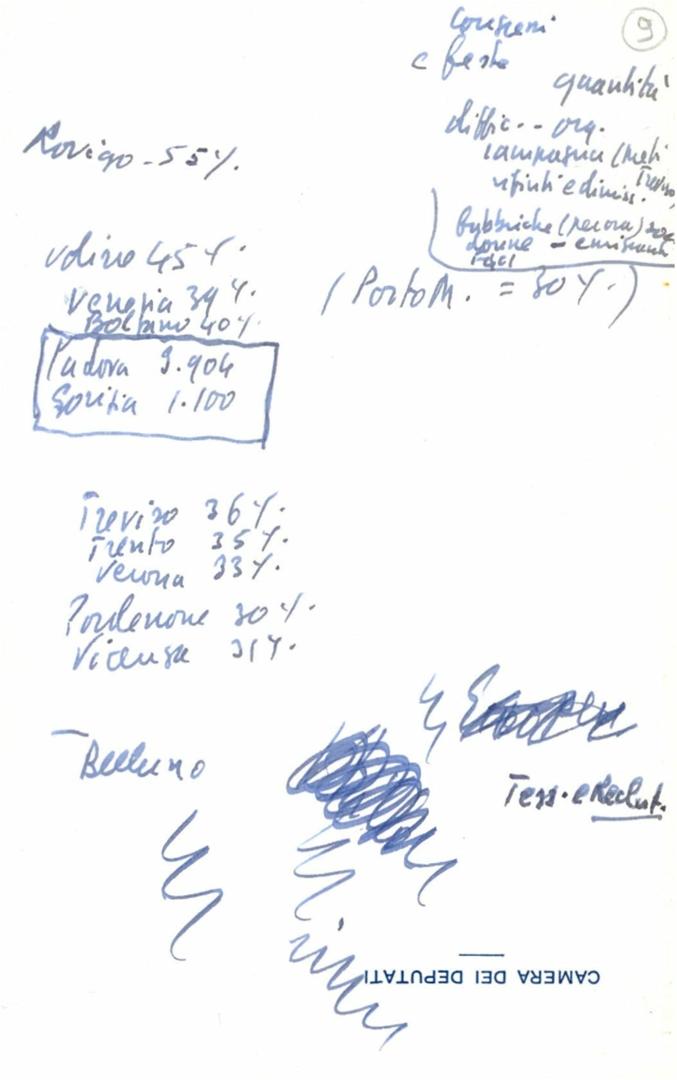 9
Convegni
e feste
quantità
diffic.. org.
campagna (metà
Treviso)
rifiuti e dimiss.
fabbriche (Pecora)
donne - emigranti
FGCI
Rovigo - 55%.
Udine 45%.
Venezia 39%.
Bolzano 40%.
(Porto M. = 30%.)
Padova 9.904
Gorizia 1.100
Treviso 36%.
Trento 35%.
Verona 33%.
Pordenone 30%.
Vicenza 31%.
Belluno
Tess. e Reclut.
CAMERA DEI DEPUTATI